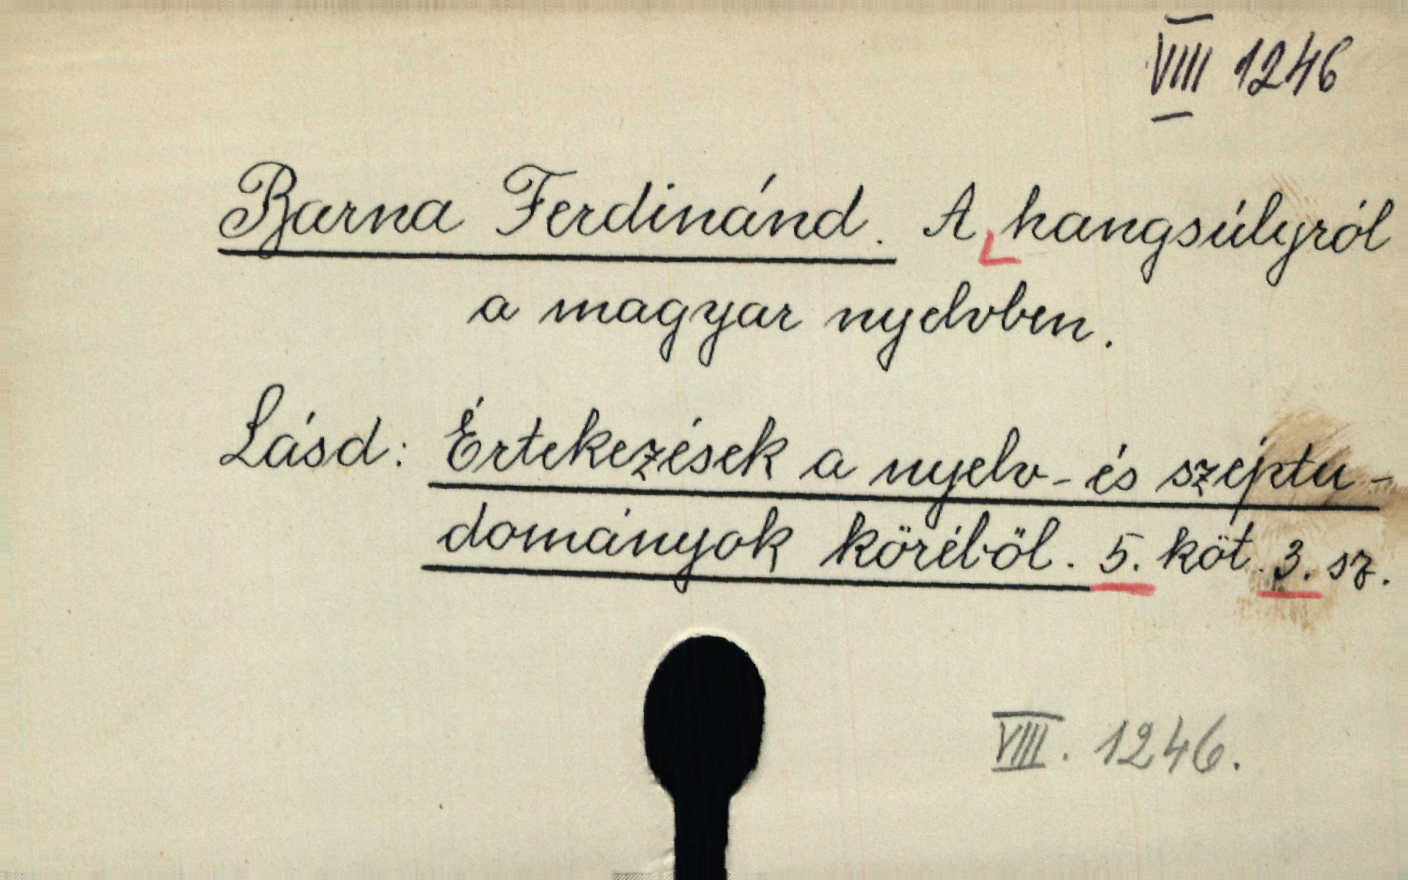 VIII 1246
Barna Ferdinánd. A hangsúlyról
a magyar nyelvben.
Lásd: Értekezések a nyelv- és széptu-
dományok köréből. 5. köt. 3. sz.
VIII. 1246.